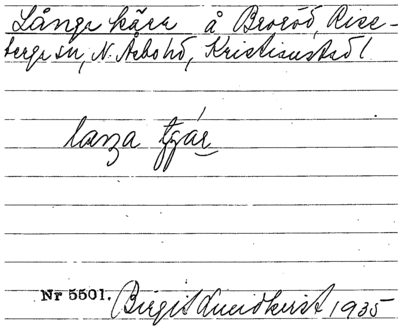 Långa kärr å Broröd, Rise-
berga sn, N. Åsbo hd, Kristianstads l
laŋa
Nr 5501. Birgit Lundkvist 1935